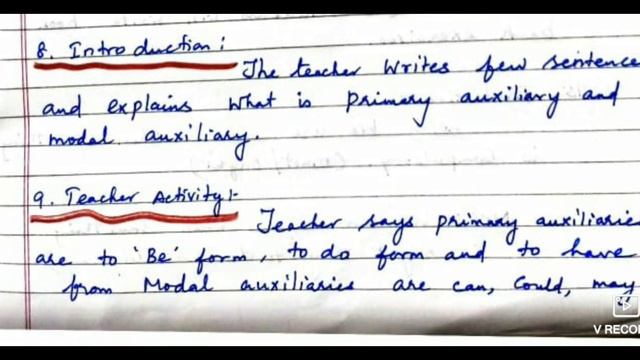 8. Introduction :
The teacher writes few sentence
and explains what is primary auxiliary and
modal auxiliary.
9. Teacher Activity :-
Teacher says primary auxiliarie
are to 'Be' form, to do form and to have
from Modal auxiliaries are can, could, may
V RECO